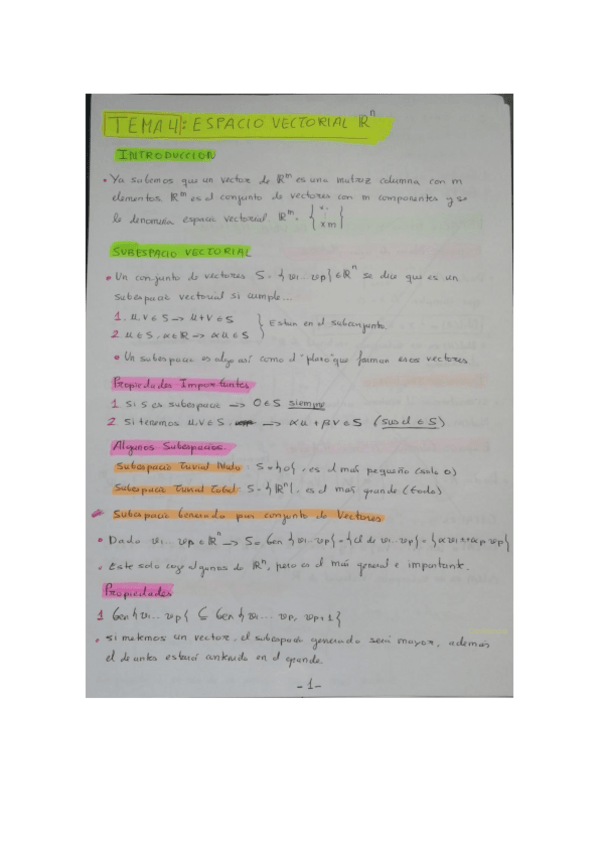 TEMA 4: ESPACIO VECTORIAL ℝⁿ
INTRODUCCION
• Ya sabemos que un vector de ℝᵐ es una matriz columna con m
elementos. ℝᵐ es el conjunto de vectores con m componentes y se
le denomina espacio vectorial. ℝᵐ = { x₁ ⋮ xm }
SUBESPACIO VECTORIAL
• Un conjunto de vectores S = {v1...vp} ∈ ℝⁿ se dice que es un
subespacio vectorial si cumple...
1. u, v ∈ S → u+v ∈ S
2. u ∈ S, α ∈ ℝ → αu ∈ S } Estan en el subconjunto.
• Un subespacio es algo así como el "plano" que forman esos vectores
Propiedades Importantes
1 Si S es subespacio → 0 ∈ S siempre
2 Si tenemos u, v ∈ S → αu + βv ∈ S (su cl ∈ S)
Algunos Subespacios.
Subespacio Trivial Nulo: S = {0}, es el más pequeño (solo 0)
Subespacio Trivial Total: S = {ℝⁿ}, es el más grande (todo)
Subespacio Generado por conjunto de Vectores
• Dado v1...vp ∈ ℝⁿ → S = Gen {v1...vp} = {cl de v1...vp} = {αv1+...+αp vp}
• Este solo coge algunos de ℝⁿ, pero es el más general e importante.
Propiedades
1 Gen {v1...vp} ⊆ Gen {v1...vp, vp+1}
• Si metemos un vector, el subespacio generado será mayor, además
el de antes estará contenido en el grande.
-1-